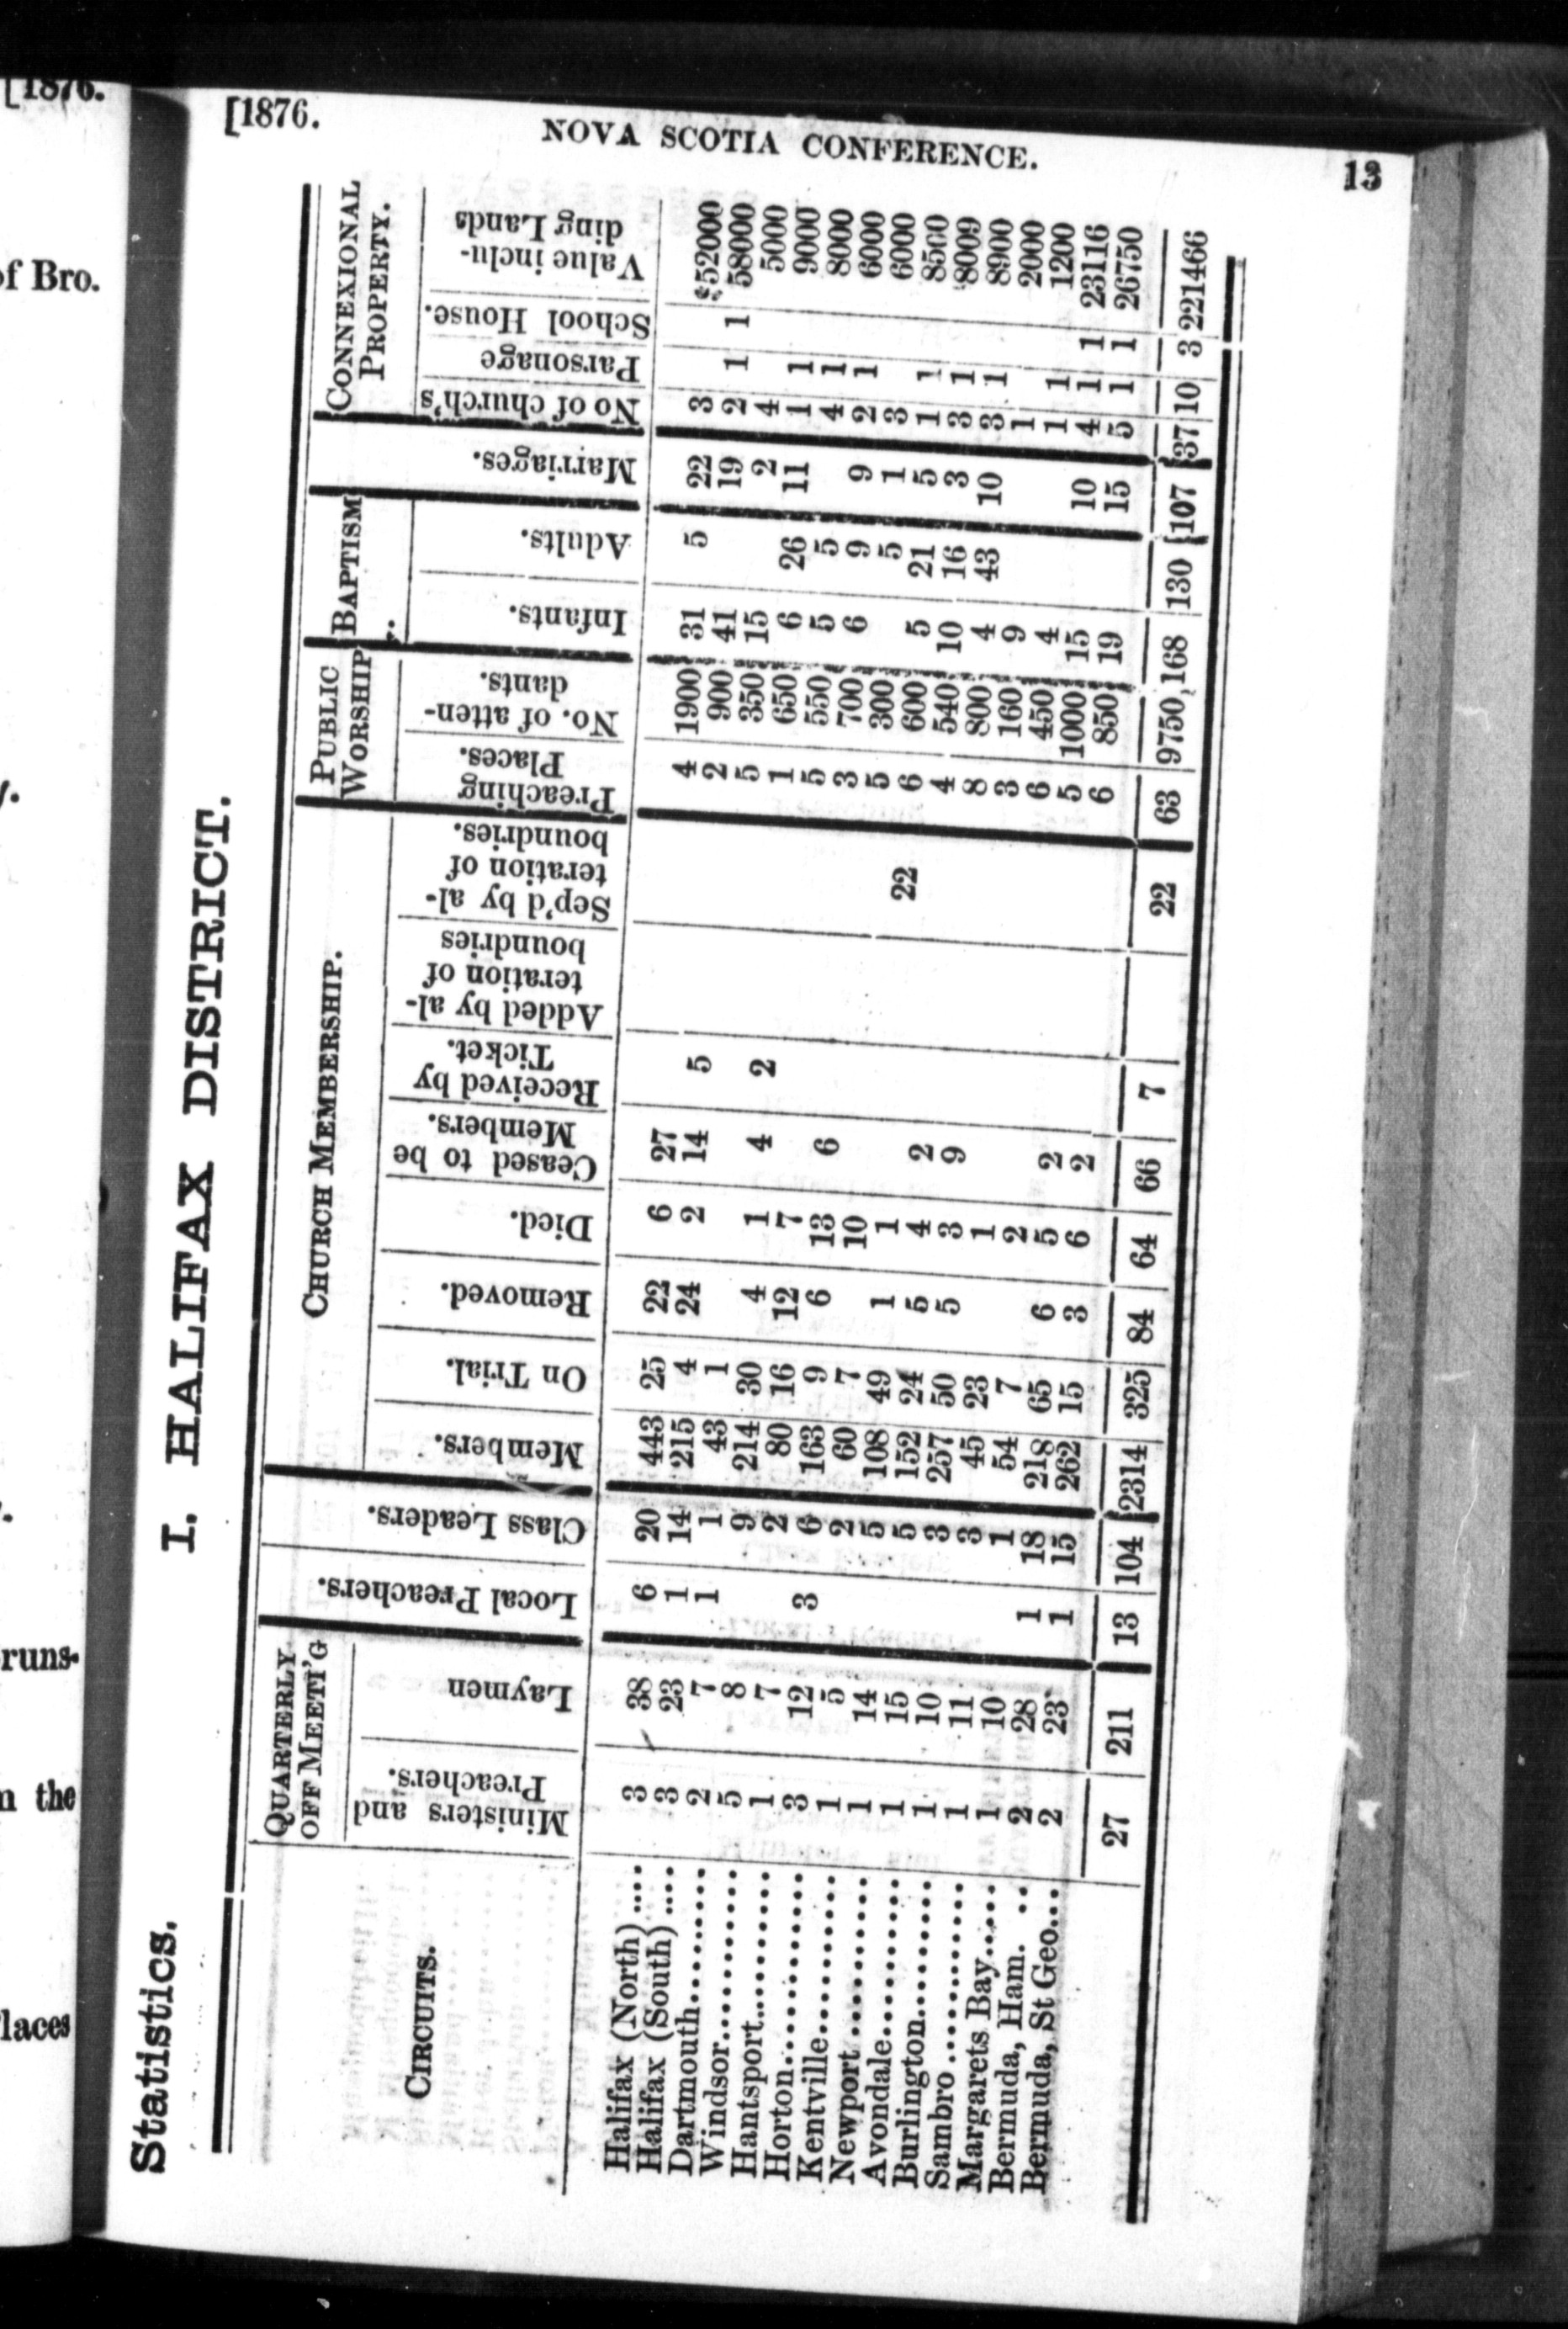 [1876.
of Bro.
y.
runs-
n the
laces
[1876.
NOVA SCOTIA CONFERENCE.
13
Statistics.
I. HALIFAX DISTRICT.
CIRCUITS.
QUARTERLY
OFF MEETI'G
Ministers and
Preachers.
Laymen
Local Preachers.
Class Leaders.
CHURCH MEMBERSHIP.
Members.
On Trial.
Removed.
Died.
Ceased to be
Members.
Received by
Ticket.
Added by al-
teration of
boundries
Sep'd by al-
teration of
boundries.
PUBLIC
WORSHIP
Preaching
Places.
No. of atten-
dants.
BAPTISM
Infants.
Adults.
Marriages.
CONNEXIONAL
PROPERTY.
No of church's
Parsonage
School House.
Value inclu-
ding Lands
Halifax (North) .... 3 38 6 20 443 25 22 6 27 4 1900 31 5 22 3 $52000
Halifax (South) .... 3 23 1 14 215 4 24 2 14 5 2 900 41 19 2 1 1 58000
Dartmouth.......... 2 7 1 1 43 1 5 350 15 2 4 5000
Windsor............ 5 8 9 214 30 4 1 4 2 1 650 6 26 11 1 1 9000
Hantsport.......... 1 7 2 80 16 12 7 5 550 5 5 4 1 8000
Horton............. 3 12 3 6 163 9 6 13 6 3 700 6 9 9 2 1 6000
Kentville........... 1 5 2 60 7 10 5 300 5 1 3 6000
Newport........... 1 14 5 108 49 1 1 22 6 600 5 21 5 1 1 8500
Avondale.......... 1 15 5 152 24 5 4 2 4 540 10 16 3 3 1 8009
Burlington......... 1 10 3 257 50 5 3 9 8 800 4 43 10 3 1 8900
Sambro ........... 1 11 3 45 23 1 3 160 9 1 2000
Margarets Bay..... 1 10 1 54 7 2 6 450 4 1 1 1200
Bermuda, Ham. .. 2 28 1 18 218 65 6 5 2 5 1000 15 10 4 1 1 23116
Bermuda, St Geo... 2 23 1 15 262 15 3 6 2 6 850 19 15 5 1 1 26750
27 211 13 104 2314 325 84 64 66 7 22 63 9750 168 130 107 37 10 3 221466